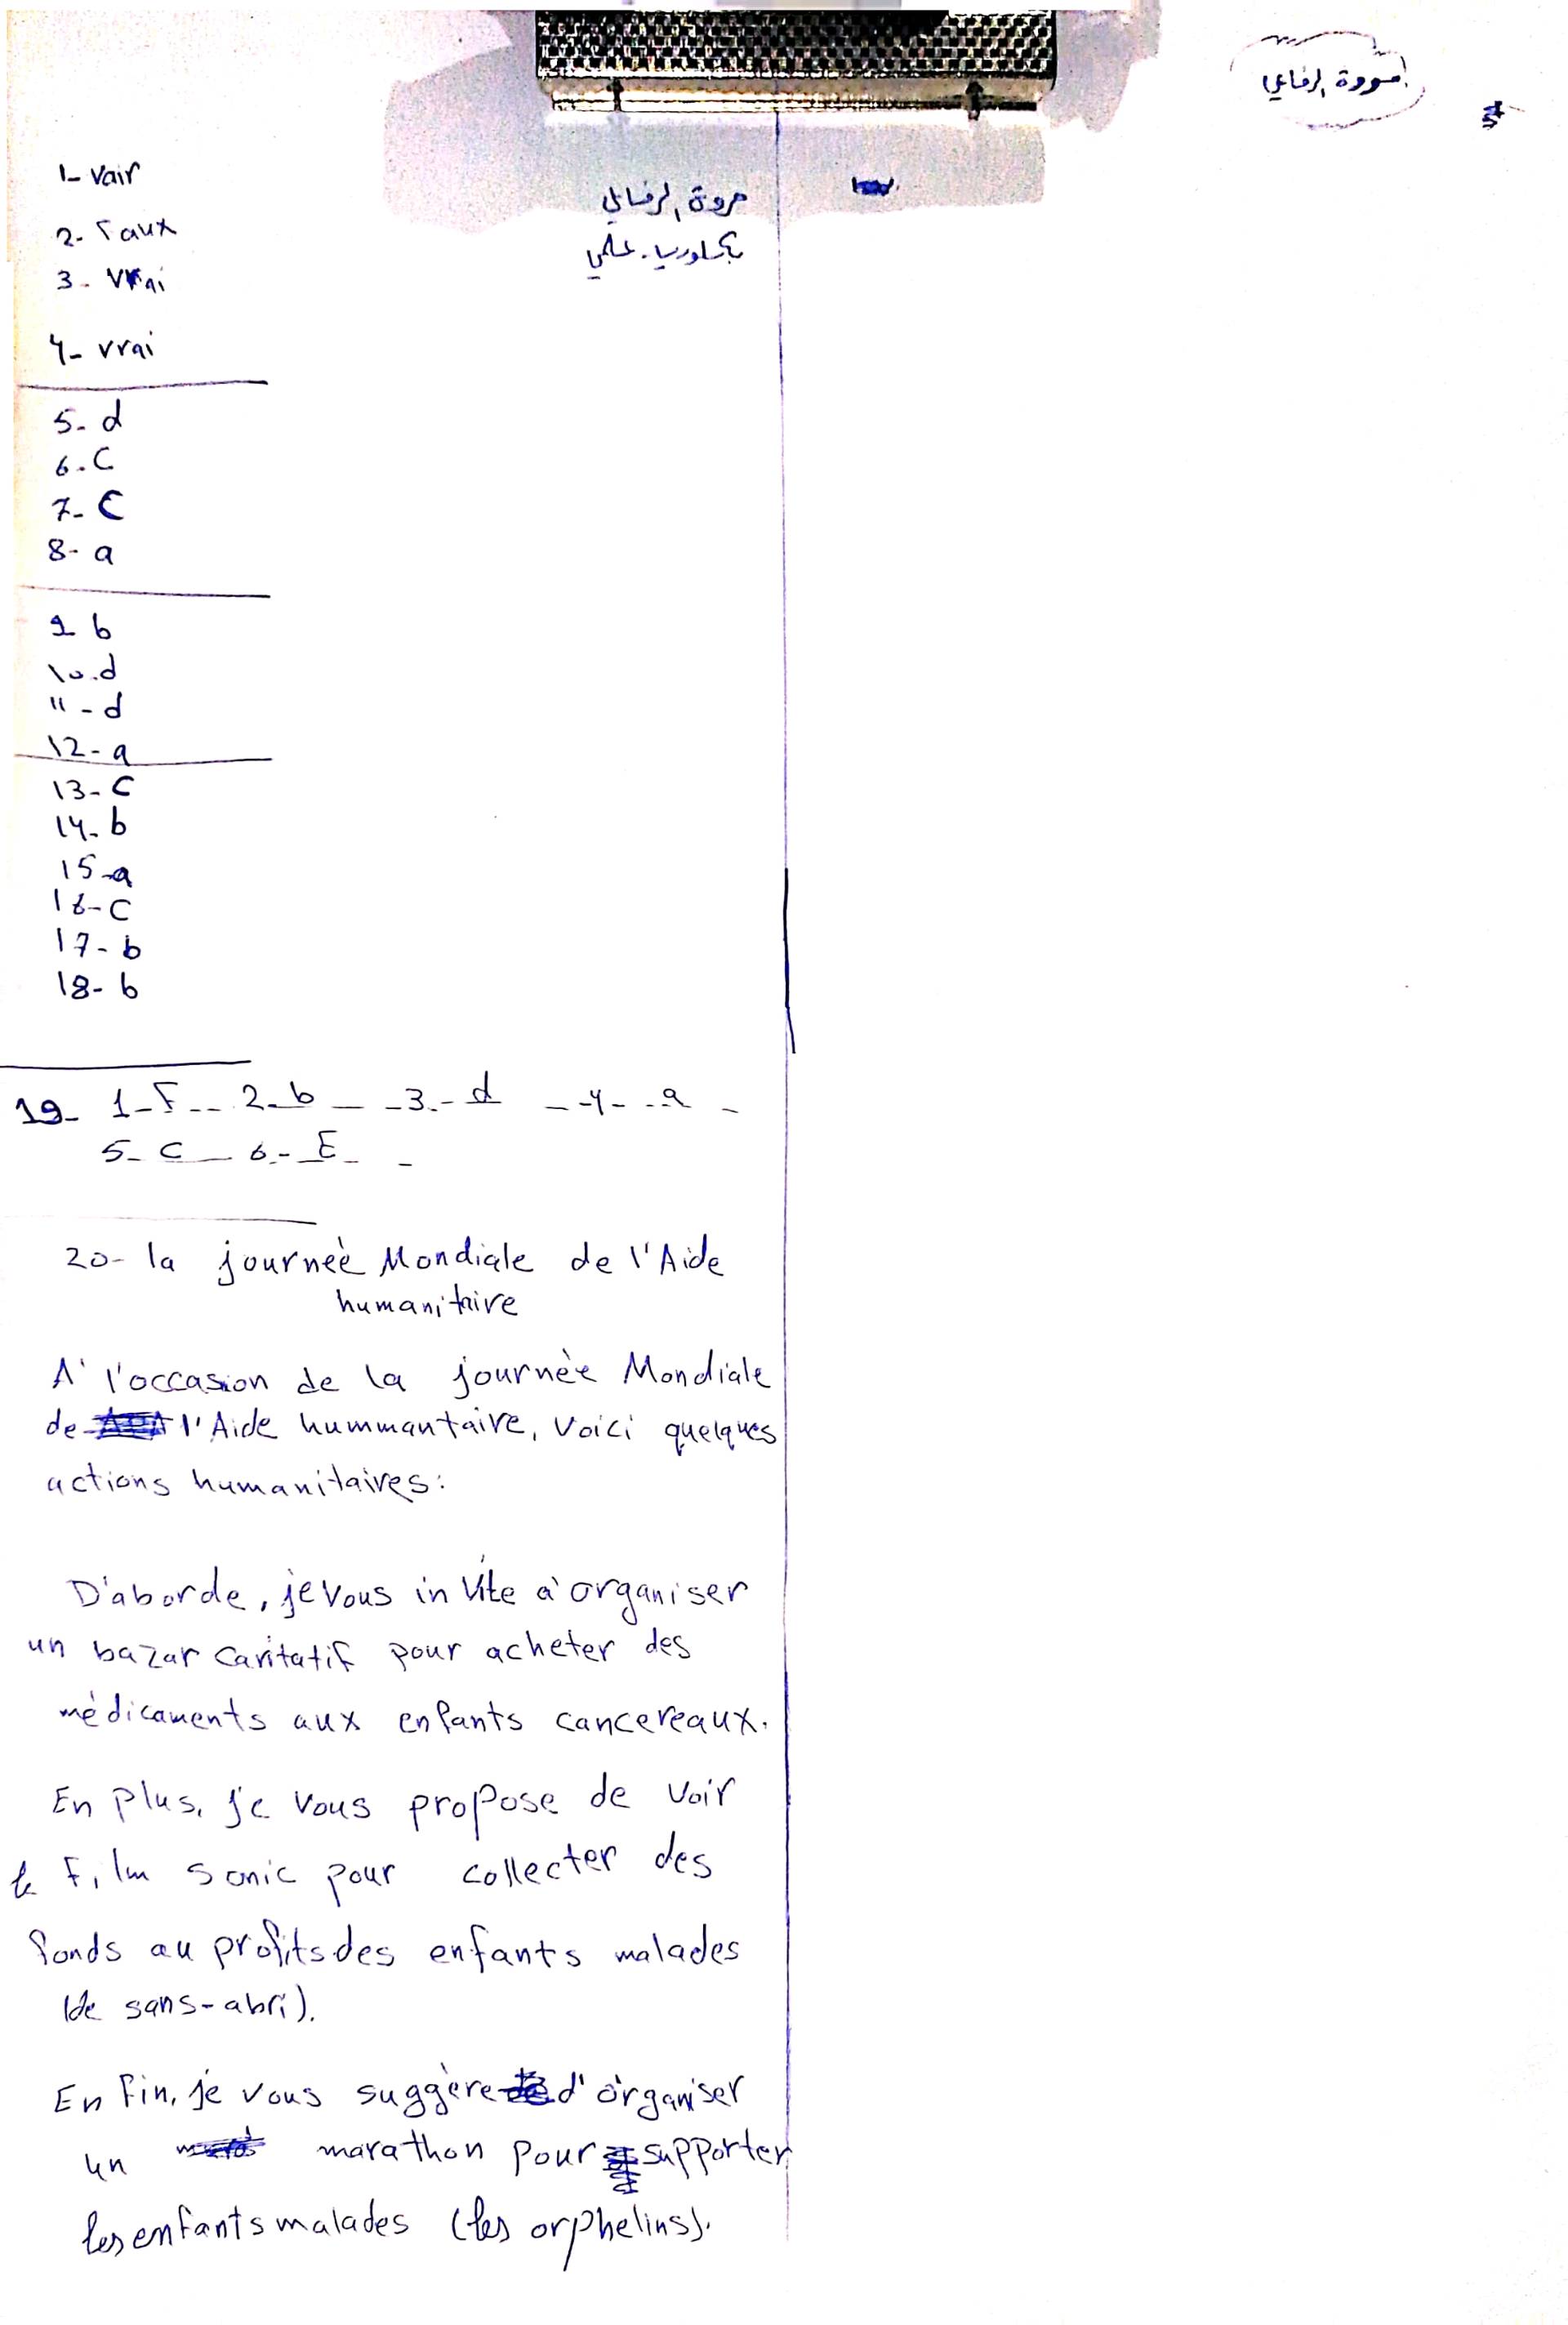 مروة الرفاعي
مروة الرفاعي
بكلوريا - علمي
1- vair
2- Faux
3- Vrai
4- vrai
5- d
6- C
7- C
8- a
9- b
10- d
11- d
12- a
13- C
14- b
15- a
16- C
17- b
18- b
19- 1-F-- 2-b - -3-- d - -4- -a -
5- C - 6-- E- -
20- la journeè Mondiale de l'Aide
humanitaire
A' l'occasion de la journèe Mondiale
de l'Aide hummantaire, Voici quelques
actions humanitaires:
D'aborde, je vous invite à organiser
un bazar caritatif pour acheter des
mèdicaments aux enfants cancereaux.
En plus, je vous propose de voir
le Film sonic pour collecter des
fonds au profits des enfants malades
(de sans-abri).
En Fin, je vous suggère d'organiser
un marathon pour supporter
les enfants malades (les orphelins).